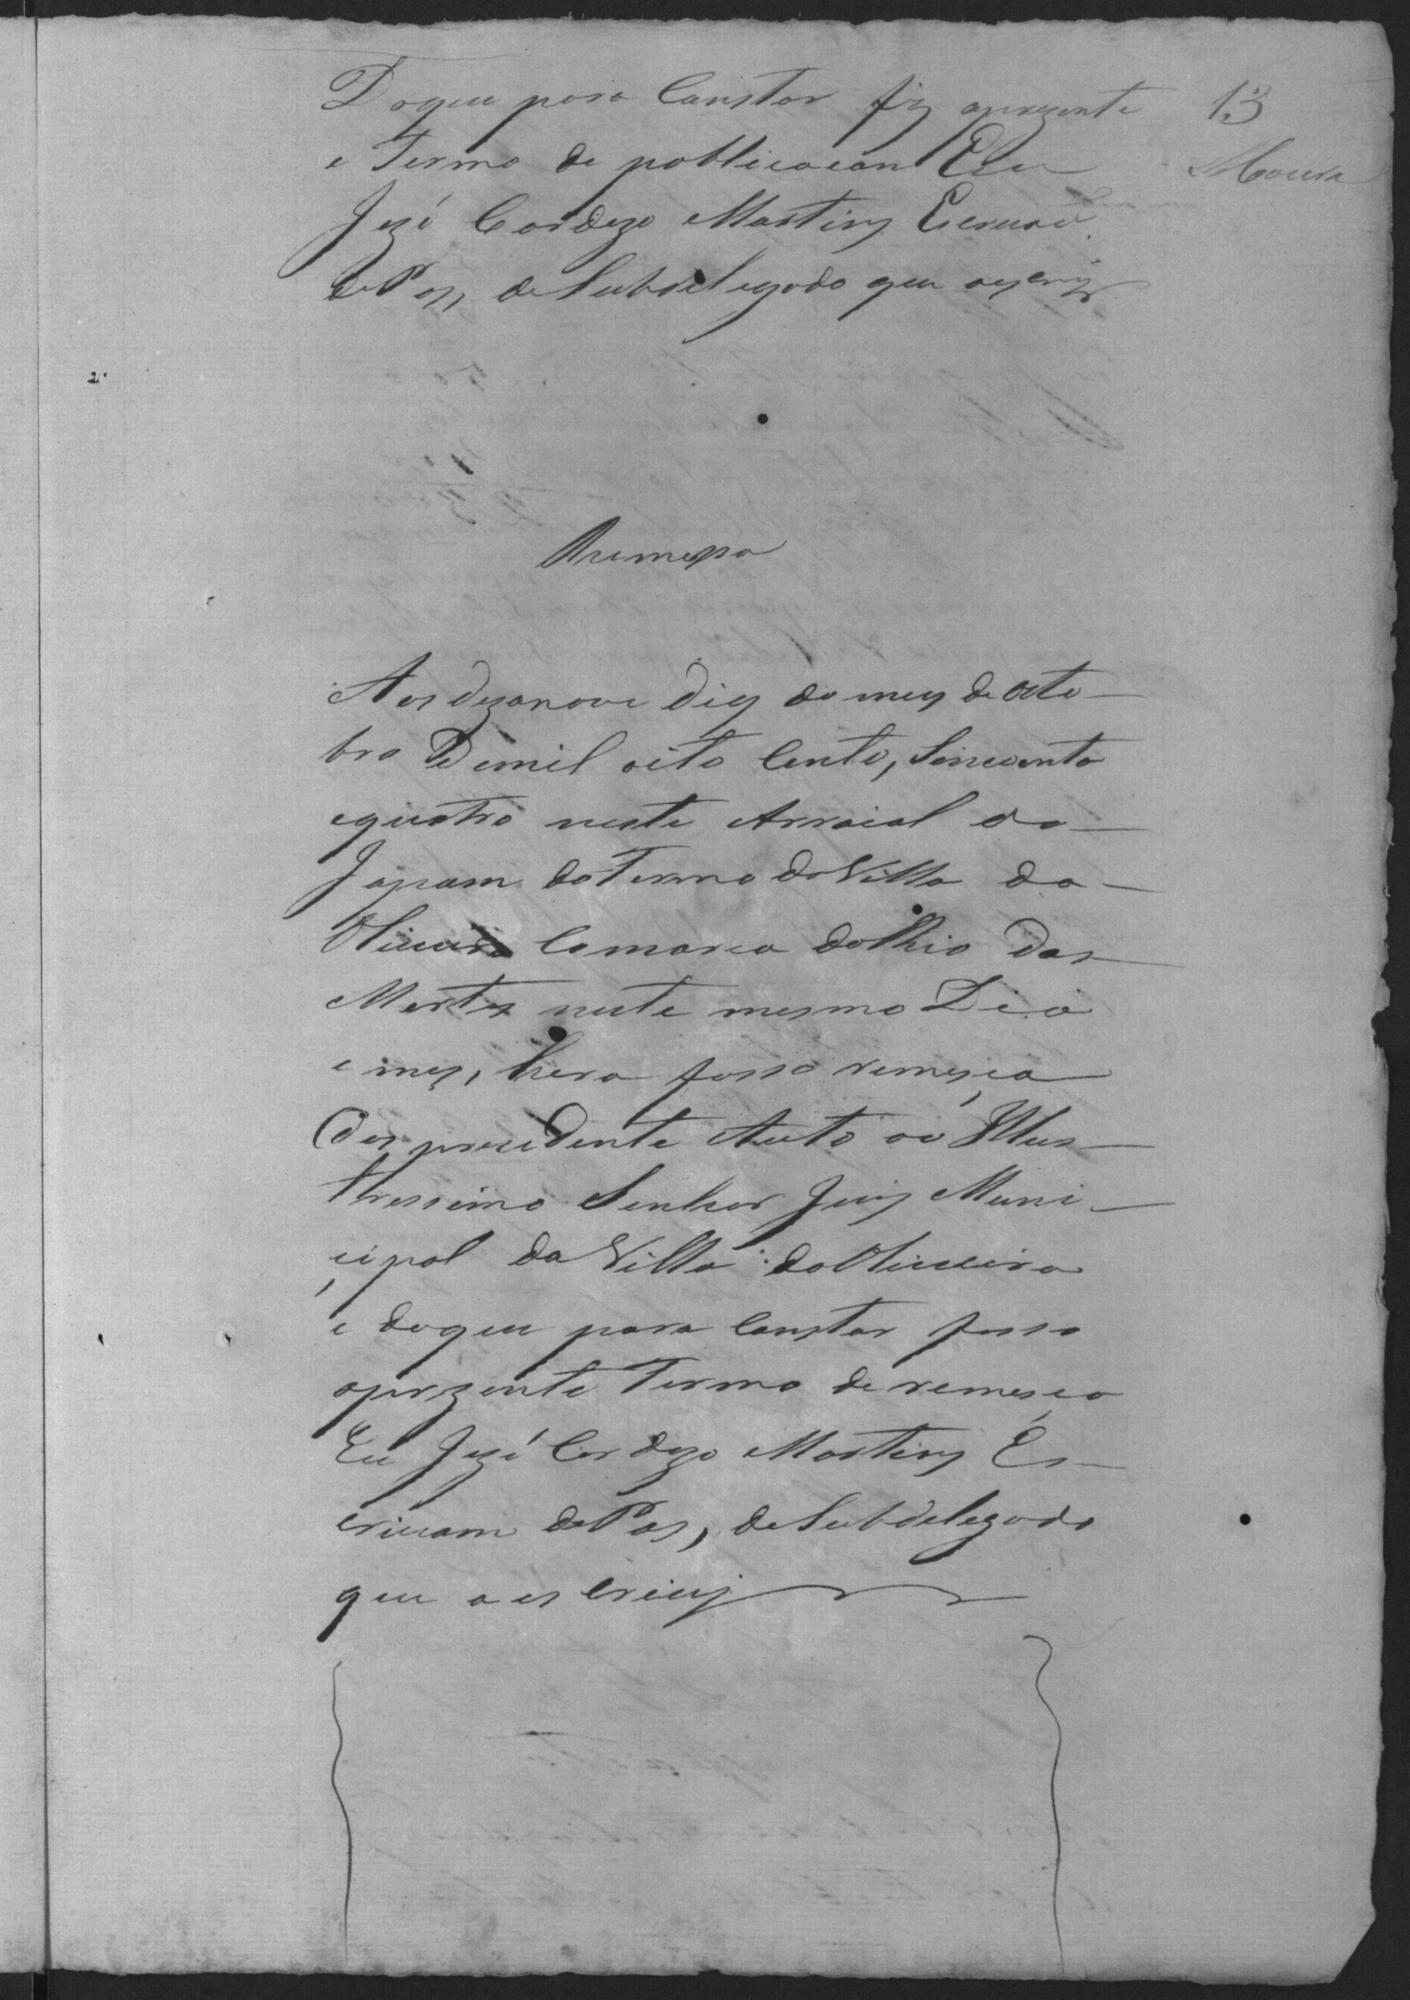 Doque para Constar fiz aprezente 13
e Termo de poblicacam Eeu Moura
Jozé Cardozo Martins Escrivao
de Paz, de Subdelegado que oescrivj
Rumessa
Aos dezanove dias do mes de Octo-
bro Demil oito Cento, Sincoenta
equatro neste Arraial do
Japam do Termo da Villa da
Oliveira Comarca do Rio das
Mortes neste mesmo Dia
e mes, hera fasso remeça
Dos prezidente Auto aó Illus-
tressimo Senhor Juiz Muni-
çipal da Villa da Oliveira
e doque para Constar fasso
oprezente Termo de remeça
Eu Jozé Cardozo Martins Es-
crivam de Paz, de Subdelegado
que o es crivj